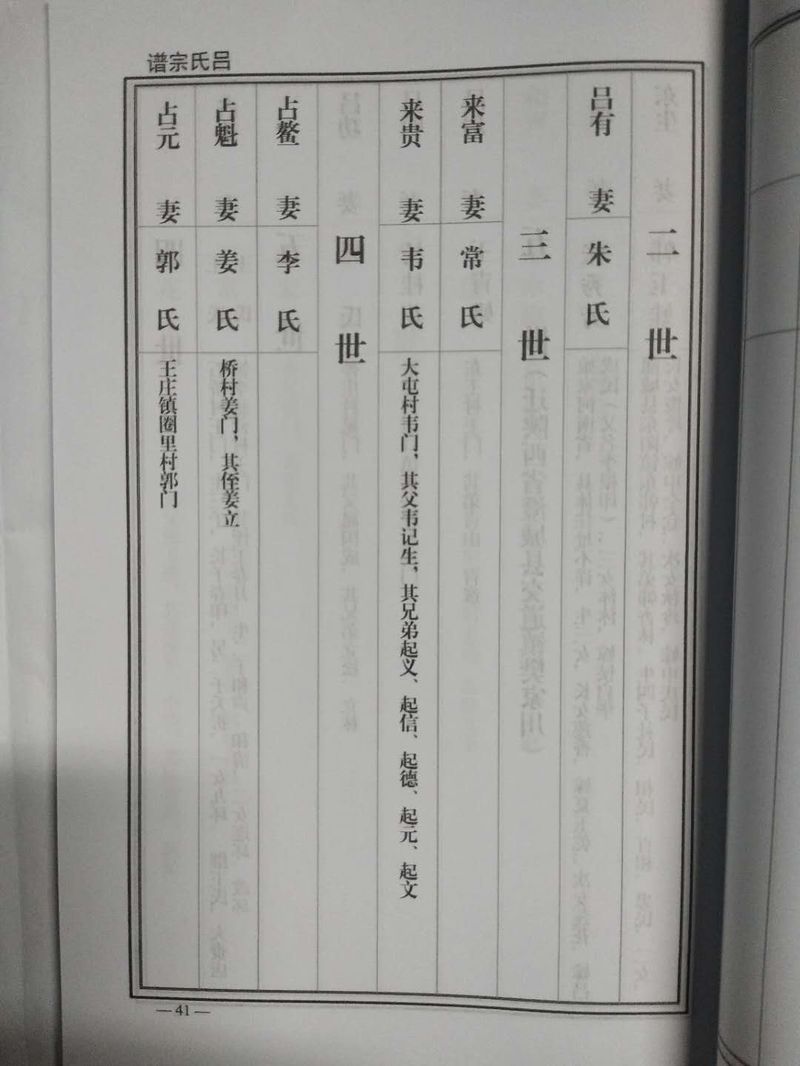 吕氏宗谱
二世
吕有 妻 朱氏
三世
来富 妻 常氏
来贵 妻 韦氏 大屯村韦门，其父韦记生，其兄弟起义、起信、起德、起元、起文
四世
占鳌 妻 李氏
占魁 妻 姜氏 桥村姜门，其侄姜立
占元 妻 郭氏 王庄镇圈里村郭门
—41—